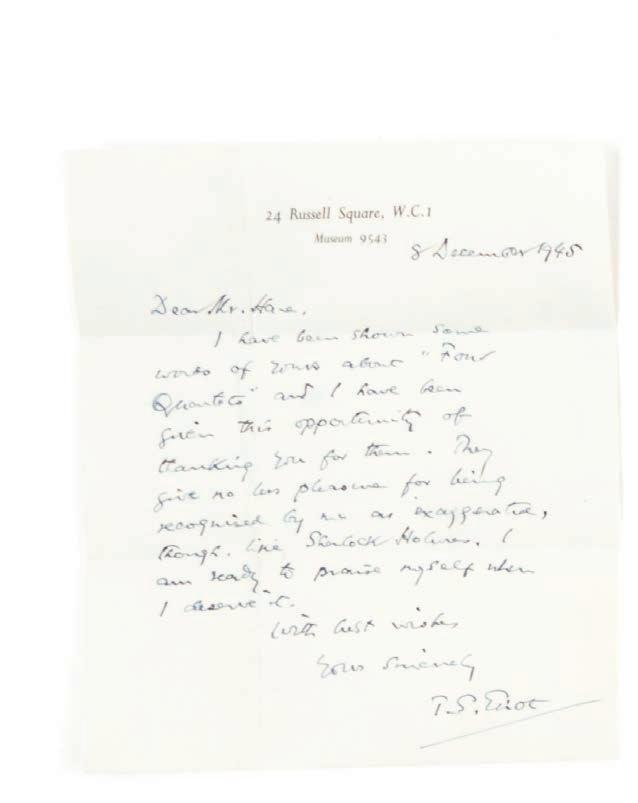 24 Russell Square, W.C.1
Museum 9543
8 December 1945
Dear Mr. Hare,
I have been shown some
words of yours about "Four
Quartets" and I have been
given this opportunity of
thanking you for them. They
give no less pleasure for being
recognised by me as exaggerated,
though, like Sherlock Holmes, I
am ready to praise myself when
I deserve it.
With best wishes
Yours sincerely
T.S. Eliot